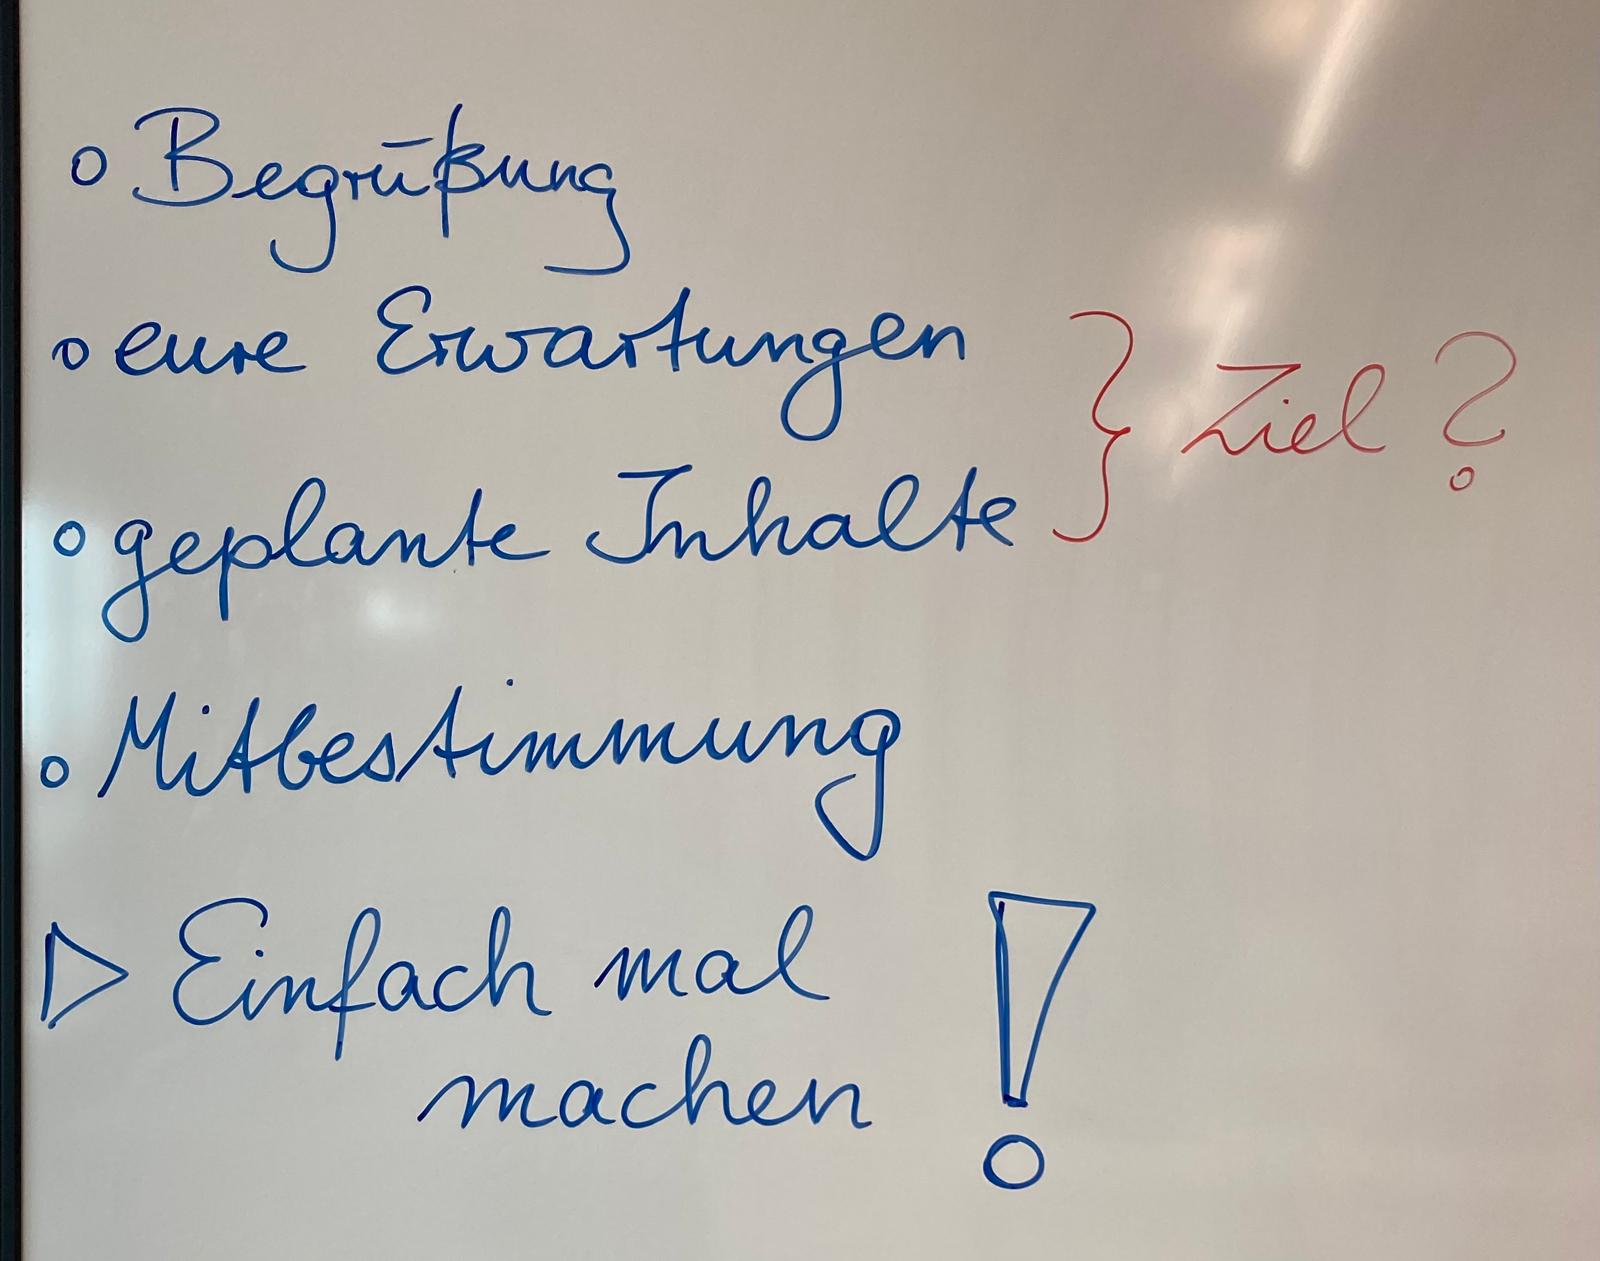 o Begrüßung
o eure Erwartungen
o geplante Inhalte
} Ziel ?
o Mitbestimmung
▷ Einfach mal
machen !